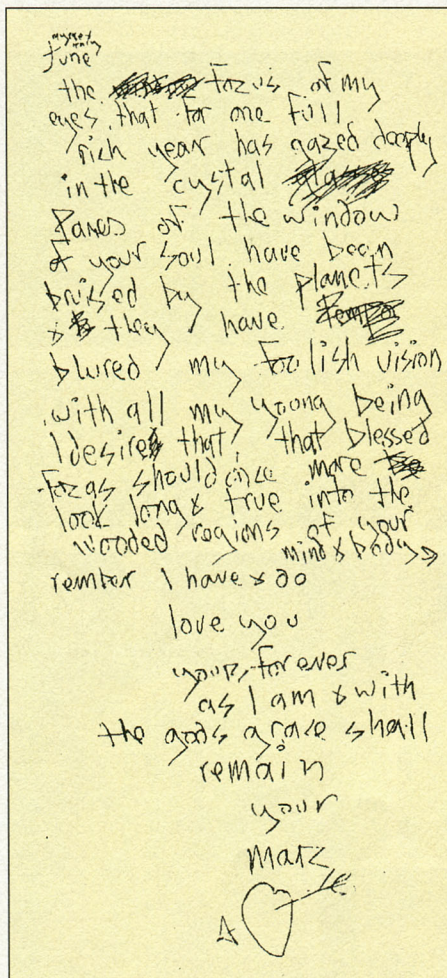 June
the focus of my
eyes that for one full
rich year has gazed deeply
in the cystal
Panes of the window
of your soul have been
bruised by the planets
& they have
blured my foolish vision
with all my young being
I desire that, that blessed
focas should once more
look long & true into the
wooded regions of your
mind & body
rember I have & do
love you
yours forever
as I am & with
the gods grace shall
remain
your
Marc